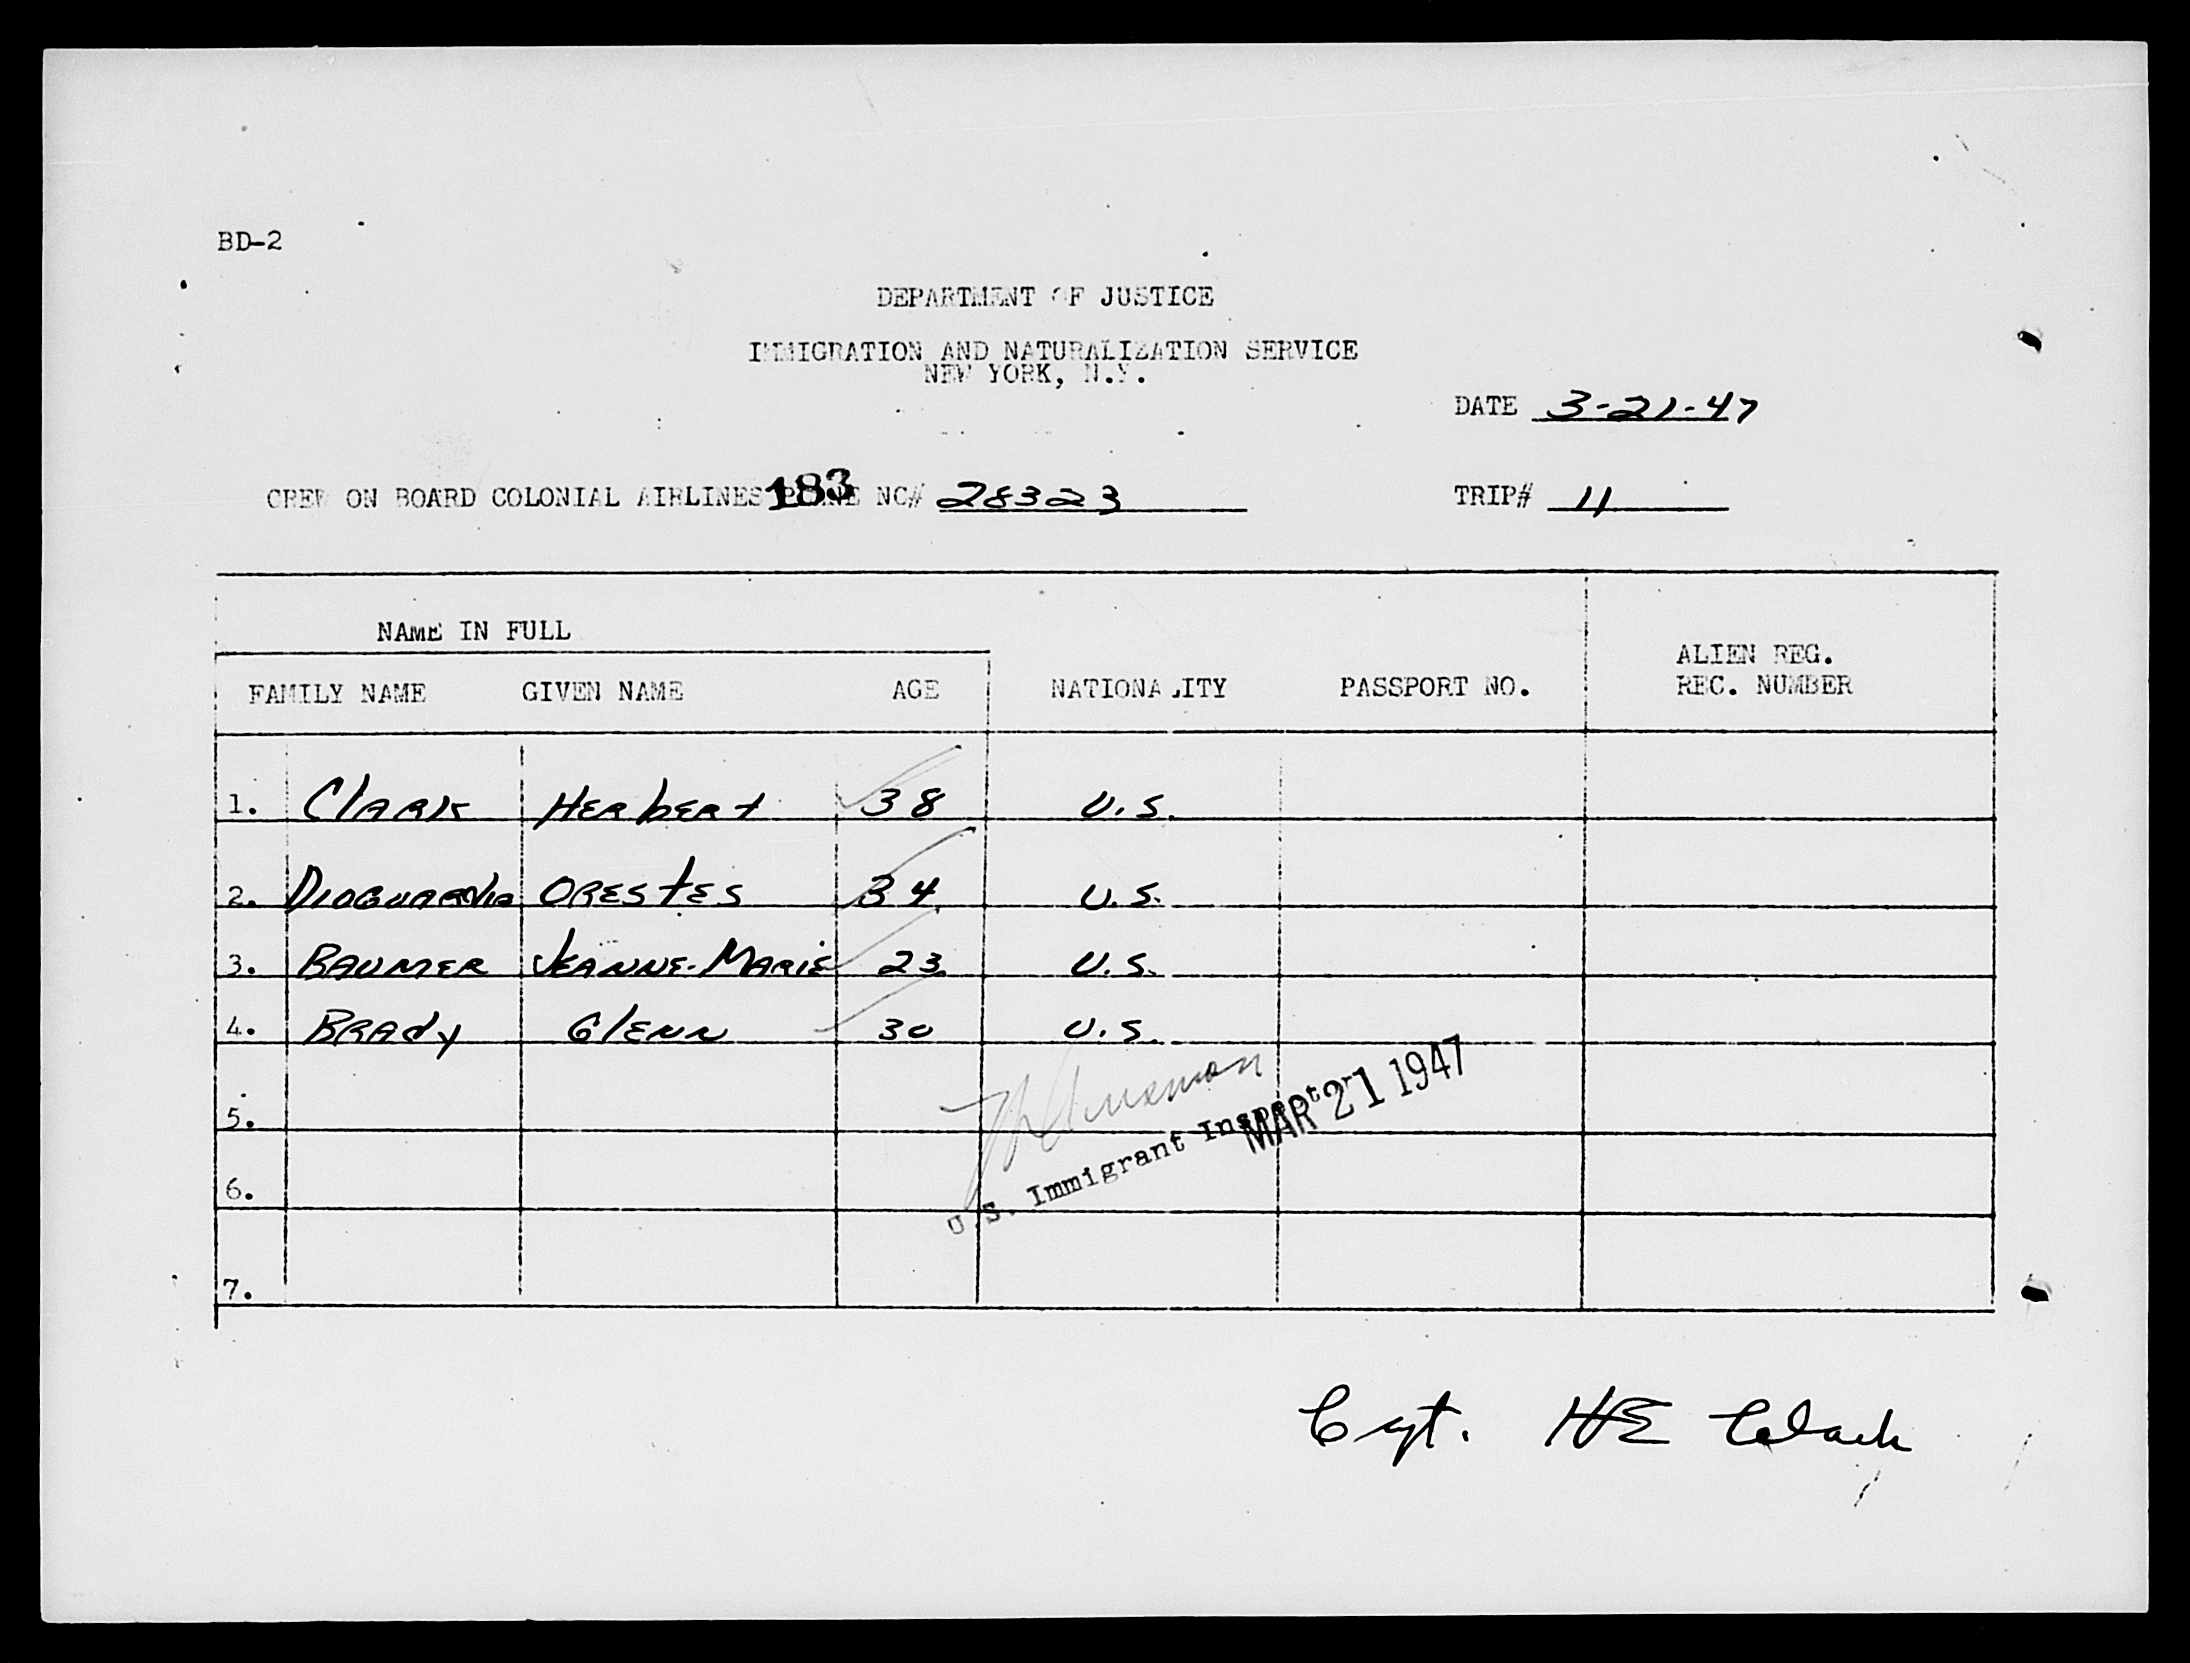 BD-2
DEPARTMENT OF JUSTICE
IMMIGRATION AND NATURALIZATION SERVICE
NEW YORK, N.Y.
DATE 3-21-47
CREW ON BOARD COLONIAL AIRLINES PLANE NC# 28323 TRIP# 11
183
NAME IN FULL
FAMILY NAME GIVEN NAME AGE NATIONALITY PASSPORT NO. ALIEN REG. REC. NUMBER
1. Clark Herbert 38 U.S.
2. Dioguardia Orestes 34 U.S.
3. Baumer Jeanne-Marie 23 U.S.
4. Brady Glenn 30 U.S.
5.
U.S. Immigrant Inspector
MAR 21 1947
6.
7.
Cpt. HE Clark